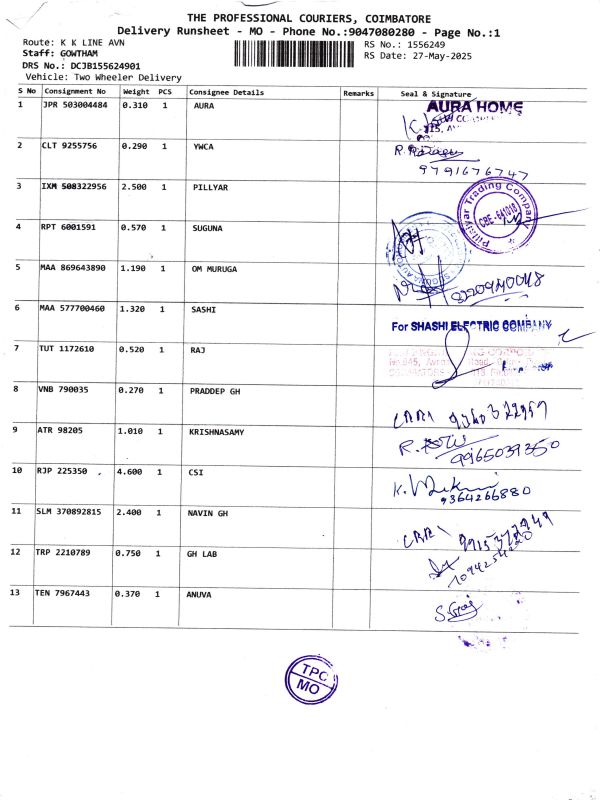 THE PROFESSIONAL COURIERS, COIMBATORE
Delivery Runsheet - MO - Phone No.:9047080280 - Page No.:1
Route: K K LINE AVN
RS No.: 1556249
Staff: GOWTHAM
RS Date: 27-May-2025
DRS No.: DCJB155624901
Vehicle: Two Wheeler Delivery
S No Consignment No Weight PCS Consignee Details Remarks Seal & Signature
1 JPR 503004484 0.310 1 AURA AURA HOME
2 CLT 9255756 0.290 1 YWCA
9791676747
3 IXM 508322956 2.500 1 PILLYAR Pillaiyar Trading Company
4 RPT 6001591 0.570 1 SUGUNA
5 MAA 869643890 1.190 1 OM MURUGA
6 MAA 577700460 1.320 1 SASHI For SHASHI ELECTRIC COMPANY
7 TUT 1172610 0.520 1 RAJ
8 VNB 790035 0.270 1 PRADDEP GH
9 ATR 98205 1.010 1 KRISHNASAMY
9965039350
10 RJP 225350 4.600 1 CSI
9364266880
11 SLM 370892815 2.400 1 NAVIN GH
12 TRP 2210789 0.750 1 GH LAB
13 TEN 7967443 0.370 1 ANUVA
TPC
MO